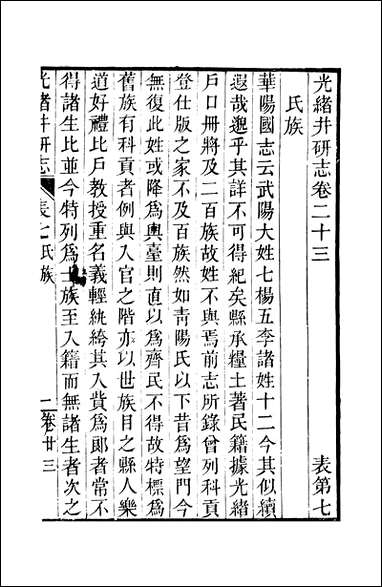 光緒井研志卷二十三　　　表第七
氏族
華陽國志云武陽大姓七楊五李諸姓十二今其似續
遐哉邈乎其詳不可得紀矣縣承糧土著民籍據光緒
戶口冊將及二百族故姓不與焉前志所錄曾列科貢
登仕版之家不及百族然如青陽氏以下昔為望門今
無復此姓或降為輿臺則直以為齊民不得故特標為
舊族有科貢者例與入官之階亦以世族目之縣人樂
道好禮比戶教授重名義輕紈絝其入貲為郎者常不
得諸生比並今特列為士族至入籍而無諸生者次之
光緒井研志　表七　氏族　二　卷廿三